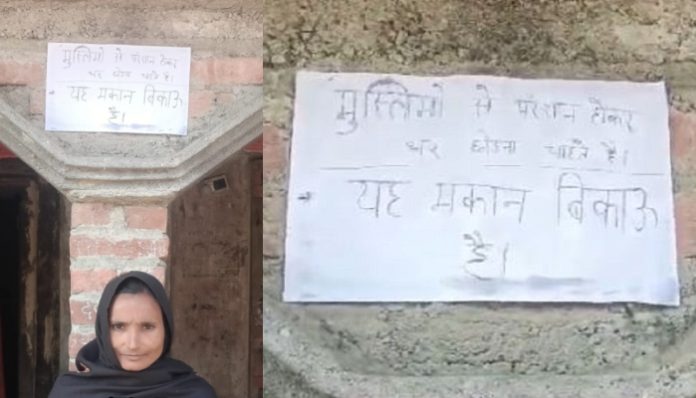 मुस्लिमो से परेशान होकर
घर छोडना चाहते है।
यह मकान बिकाऊ
है।
मुस्लिमो से परेशान होकर
घर छोडना चाहते है।
यह मकान बिकाऊ
है।